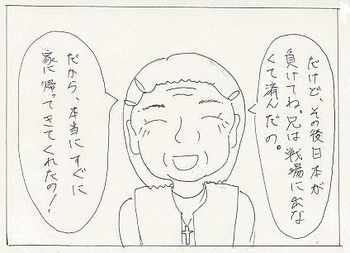 だけど、その後日本が
負けてね。兄は戦場に出な
くて済んだの。
だから、本当にすぐに
家に帰ってきてくれたの!